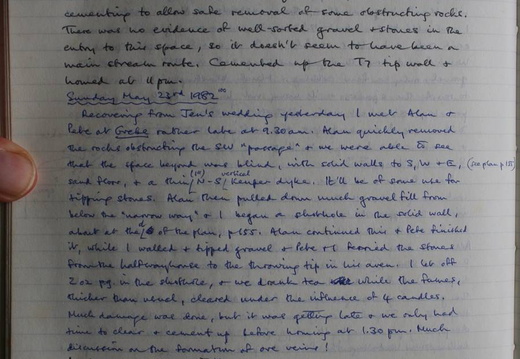 cementing to allow safe removal of some obstructing rocks.
There was no evidence of well-sorted gravel + stones in the
entry to this space, so it doesn't seem to have been a
main stream route. Cemented up the T7 tip wall +
homed at 11pm.
Sunday May 23rd 1982
Recovering from Jen's wedding yesterday I met Alan +
Pete at Grebe rather late at 9.30am. Alan quickly removed
the rocks obstructing the SW "passage" + we were able to see
that the space beyond was blind, with solid walls to S, W + E, (see plan p 155)
sand floor, + a thin (1") N-S vertical Keuper dyke. It'll be of some use for
tipping stones. Alan then pulled down much gravel fill from
below the "narrow way" + I began a shothole in the solid wall,
about at the of the plan, p155. Alan continued this + Pete finished
it, while I walled + tipped gravel + Pete + I ferried the stones
from the halfwayhouse to the throwing tip in his aven. I let off
2 oz pg. in the shothole, + we drank tea while the fumes,
thicker than usual, cleared under the influence of 4 candles.
Much damage was done, but it was getting late + we only had
time to clear + cement up before homing at 1.30 pm. Much
discussion on the formation of ore veins!